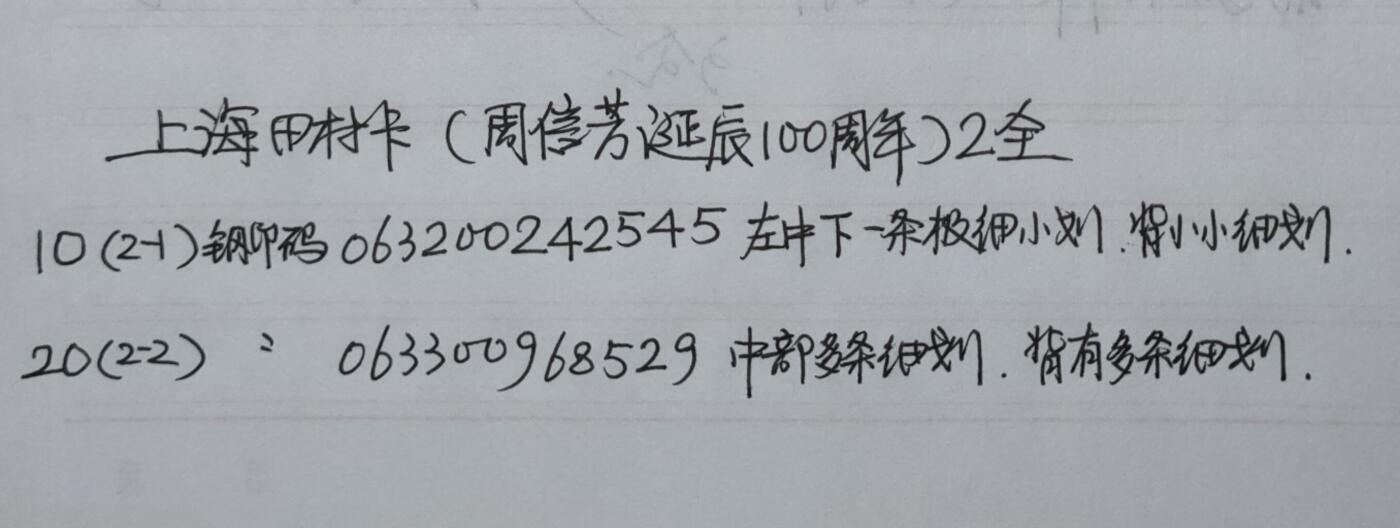 上海田村卡（周信芳诞辰100周年）2全
10（2-1）钢印码 063200242545 左中下一条极细小划.背小小细划.
20（2-2） 〃 063300968529 中部多条细划.背有多条细划.